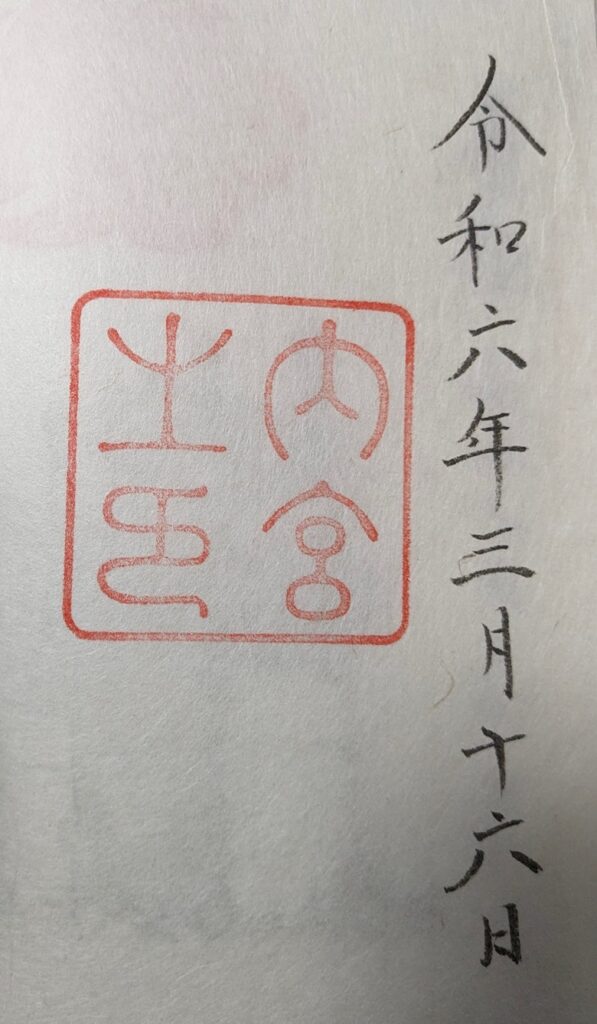 令和六年三月十六日
内宮
之印